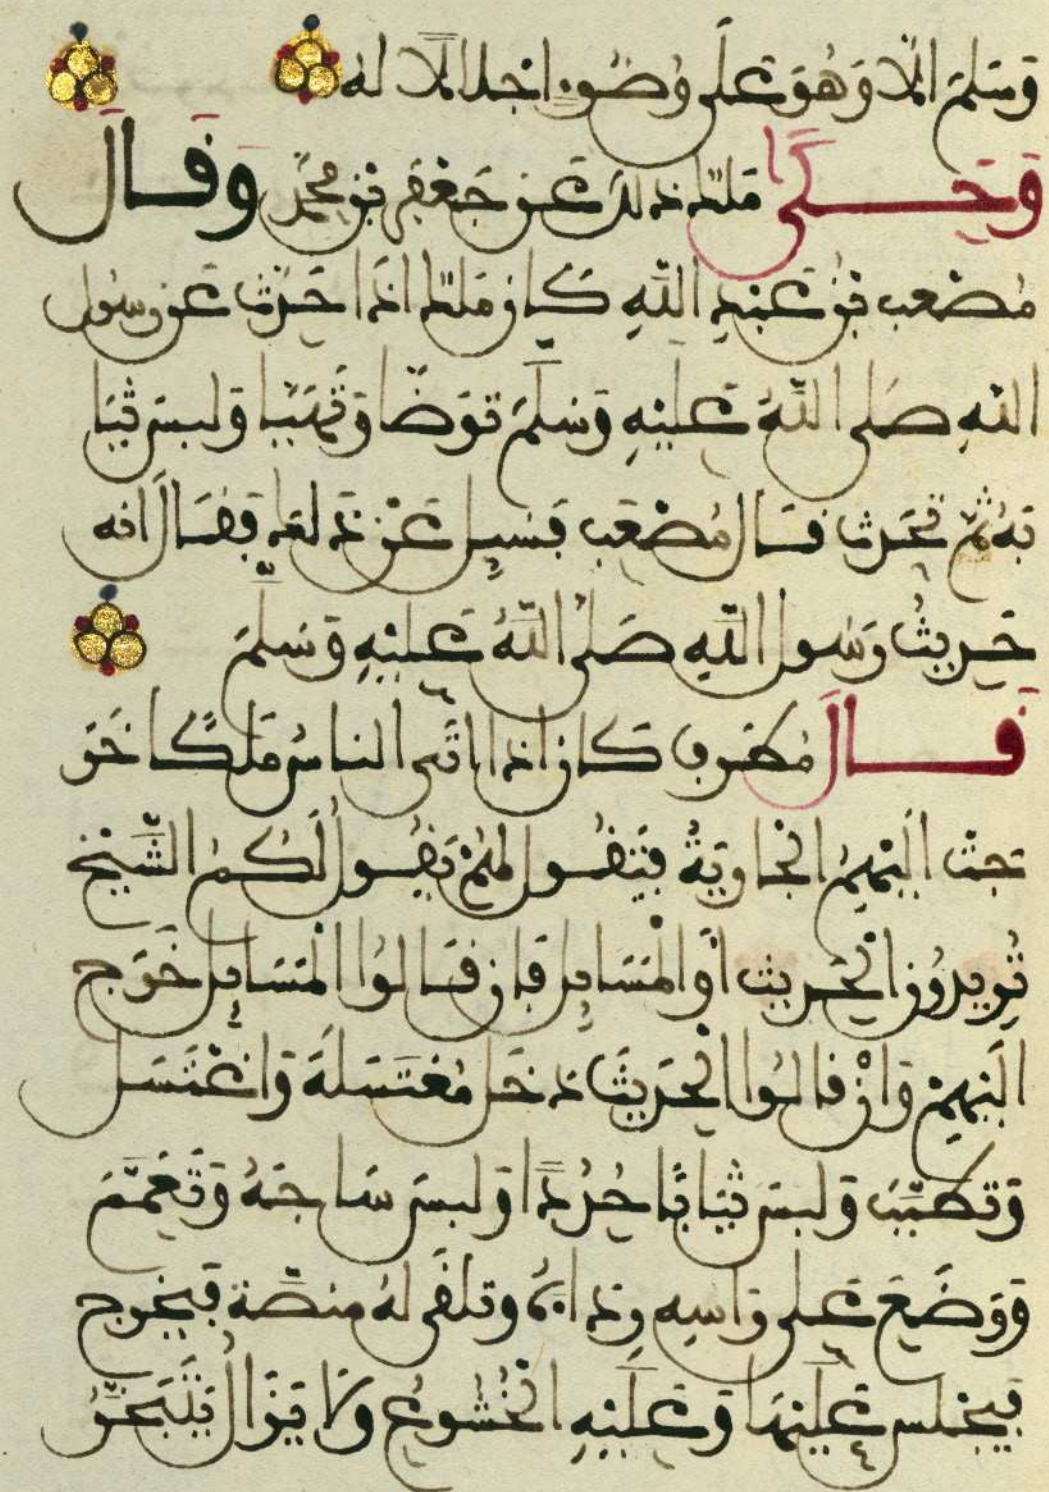 وَسَلَّمَ إلَّا وَهُوَ عَلَى وُضُوءٍ اجلالا لهُ
وَحَكَى مَلِك ذلك عَن جَعْفَرِ بْنِ مُحَمَّدٍ وَقَالَ
مُصْعَب بْنُ عَبْدِ اللَّهِ كَان مَلِك اذَا حَدَّثَ عَن رسُول
اللهِ صَلى اللَّهُ عَلَيْهِ وَسَلَّمَ تَوَضَّأ وَتَهَيَّأ وَلبسَ ثيَا
بَهُ ثُمَّ تحَدث قَال مُصْعَب فَسُيِلَ عَنْ ذَلك فَقَالَ انه
حَدِيثُ رَسُول اللَّهِ صَلى اللَّهُ عَلَيْهِ وَسَلَّمَ
قَالَ مُطَرِّف كَان اذا اتَى الناسُ مَلِكًا خَرَ
جَت الَيْهِمُ الجَارِيَةُ فَتَقُول لهُمْ يَقُول لَكُمُ الشَّيْخ
تُرِيدُونَ الْحَدِيث أوِ الْمَسَايِل فَإن قَالوُا الْمَسَايِل خَرَج
الَيْهِمْ وَإنْ قَالوُا الْحَدِيثَ دخَل مُغْتَسَلَهُ وَاغْتَسَل
وَتَطَيَّبَ وَلبسَ ثيَابًا جُدُدًا وَلبسَ سَاجَهُ وَتَعَمَّمَ
وَوَضَعَ عَلى رَاسِهِ رِدَاءَهُ وتلقَى لهُ منصَّة فَيَخْرج
فَيَجْلس عَلَيْهَا وَعَلَيْهِ الْخُشُوعُ وَلَا يَزَالُ يُبَخَّرُ